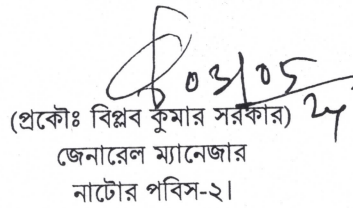 ০৩/০৫/২৫
(প্রকৌঃ বিপ্লব কুমার সরকার)
জেনারেল ম্যানেজার
নাটোর পবিস-২।